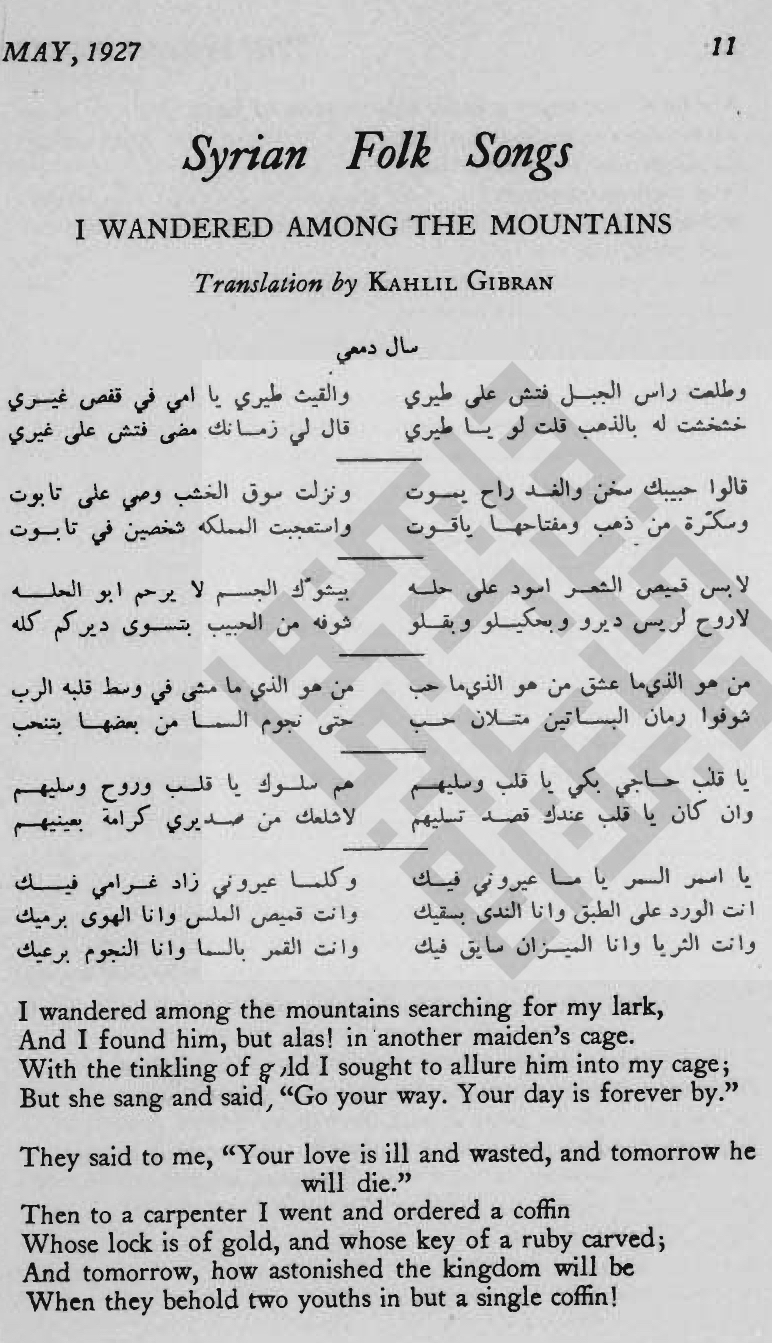 MAY, 1927 11
Syrian Folk Songs
I WANDERED AMONG THE MOUNTAINS
Translation by KAHLIL GIBRAN
سال دمعي
وطلعت راس الجبــل فتش على طيري والقيث طيري يا امي في قفص غيــري
خشخشت له بالذهب قلت لو يــا طيري قال لي زمــانك مضى فتش على غيري
قالوا حبيبك سخن والغــد راح يمــوت ونزلت سوق الخشب وصي على تابوت
وسكّرة من ذهب ومفتاحهــا ياقــوت واستعجبت المملكه شخصين في تابــوت
لابس قميص الشعــر اسود على حلــه بيشوّك الجســم لا يرحم ابو الحلــه
لاروح لريس ديرو وبحكيــلو وبقــلو شوفه من الحبيب بتســوى ديركم كله
من هو الذي ما عشق من هو الذي ما حب من هو الذي ما مشى في وسط قلبه الرب
شوفوا رمان البســاتين متــلان حــب حتى نجوم الســما من بعضهــا بتنحب
يا قلب حــاجي بكي يا قلب وسليهــم هم سلــوك يا قلــب وروح وسليهــم
وان كان يا قلب عندك قصــد تسليهم لاشلعك من صــديري كرامة بعينيهــم
يا اسمر السمر يا مــا عيروني فيــك وكلمــا عيروني زاد غــرامي فيــك
انت الورد على الطبق وانا الندى بسقيك وانت قميص الملس وانا الهوى برميك
وانت الثريا وانا الميــزان سايق فيك وانت القمر بالسما وانا النجوم برعيك
I wandered among the mountains searching for my lark,
And I found him, but alas! in another maiden's cage.
With the tinkling of gold I sought to allure him into my cage;
But she sang and said, "Go your way. Your day is forever by."
They said to me, "Your love is ill and wasted, and tomorrow he
will die."
Then to a carpenter I went and ordered a coffin
Whose lock is of gold, and whose key of a ruby carved;
And tomorrow, how astonished the kingdom will be
When they behold two youths in but a single coffin!